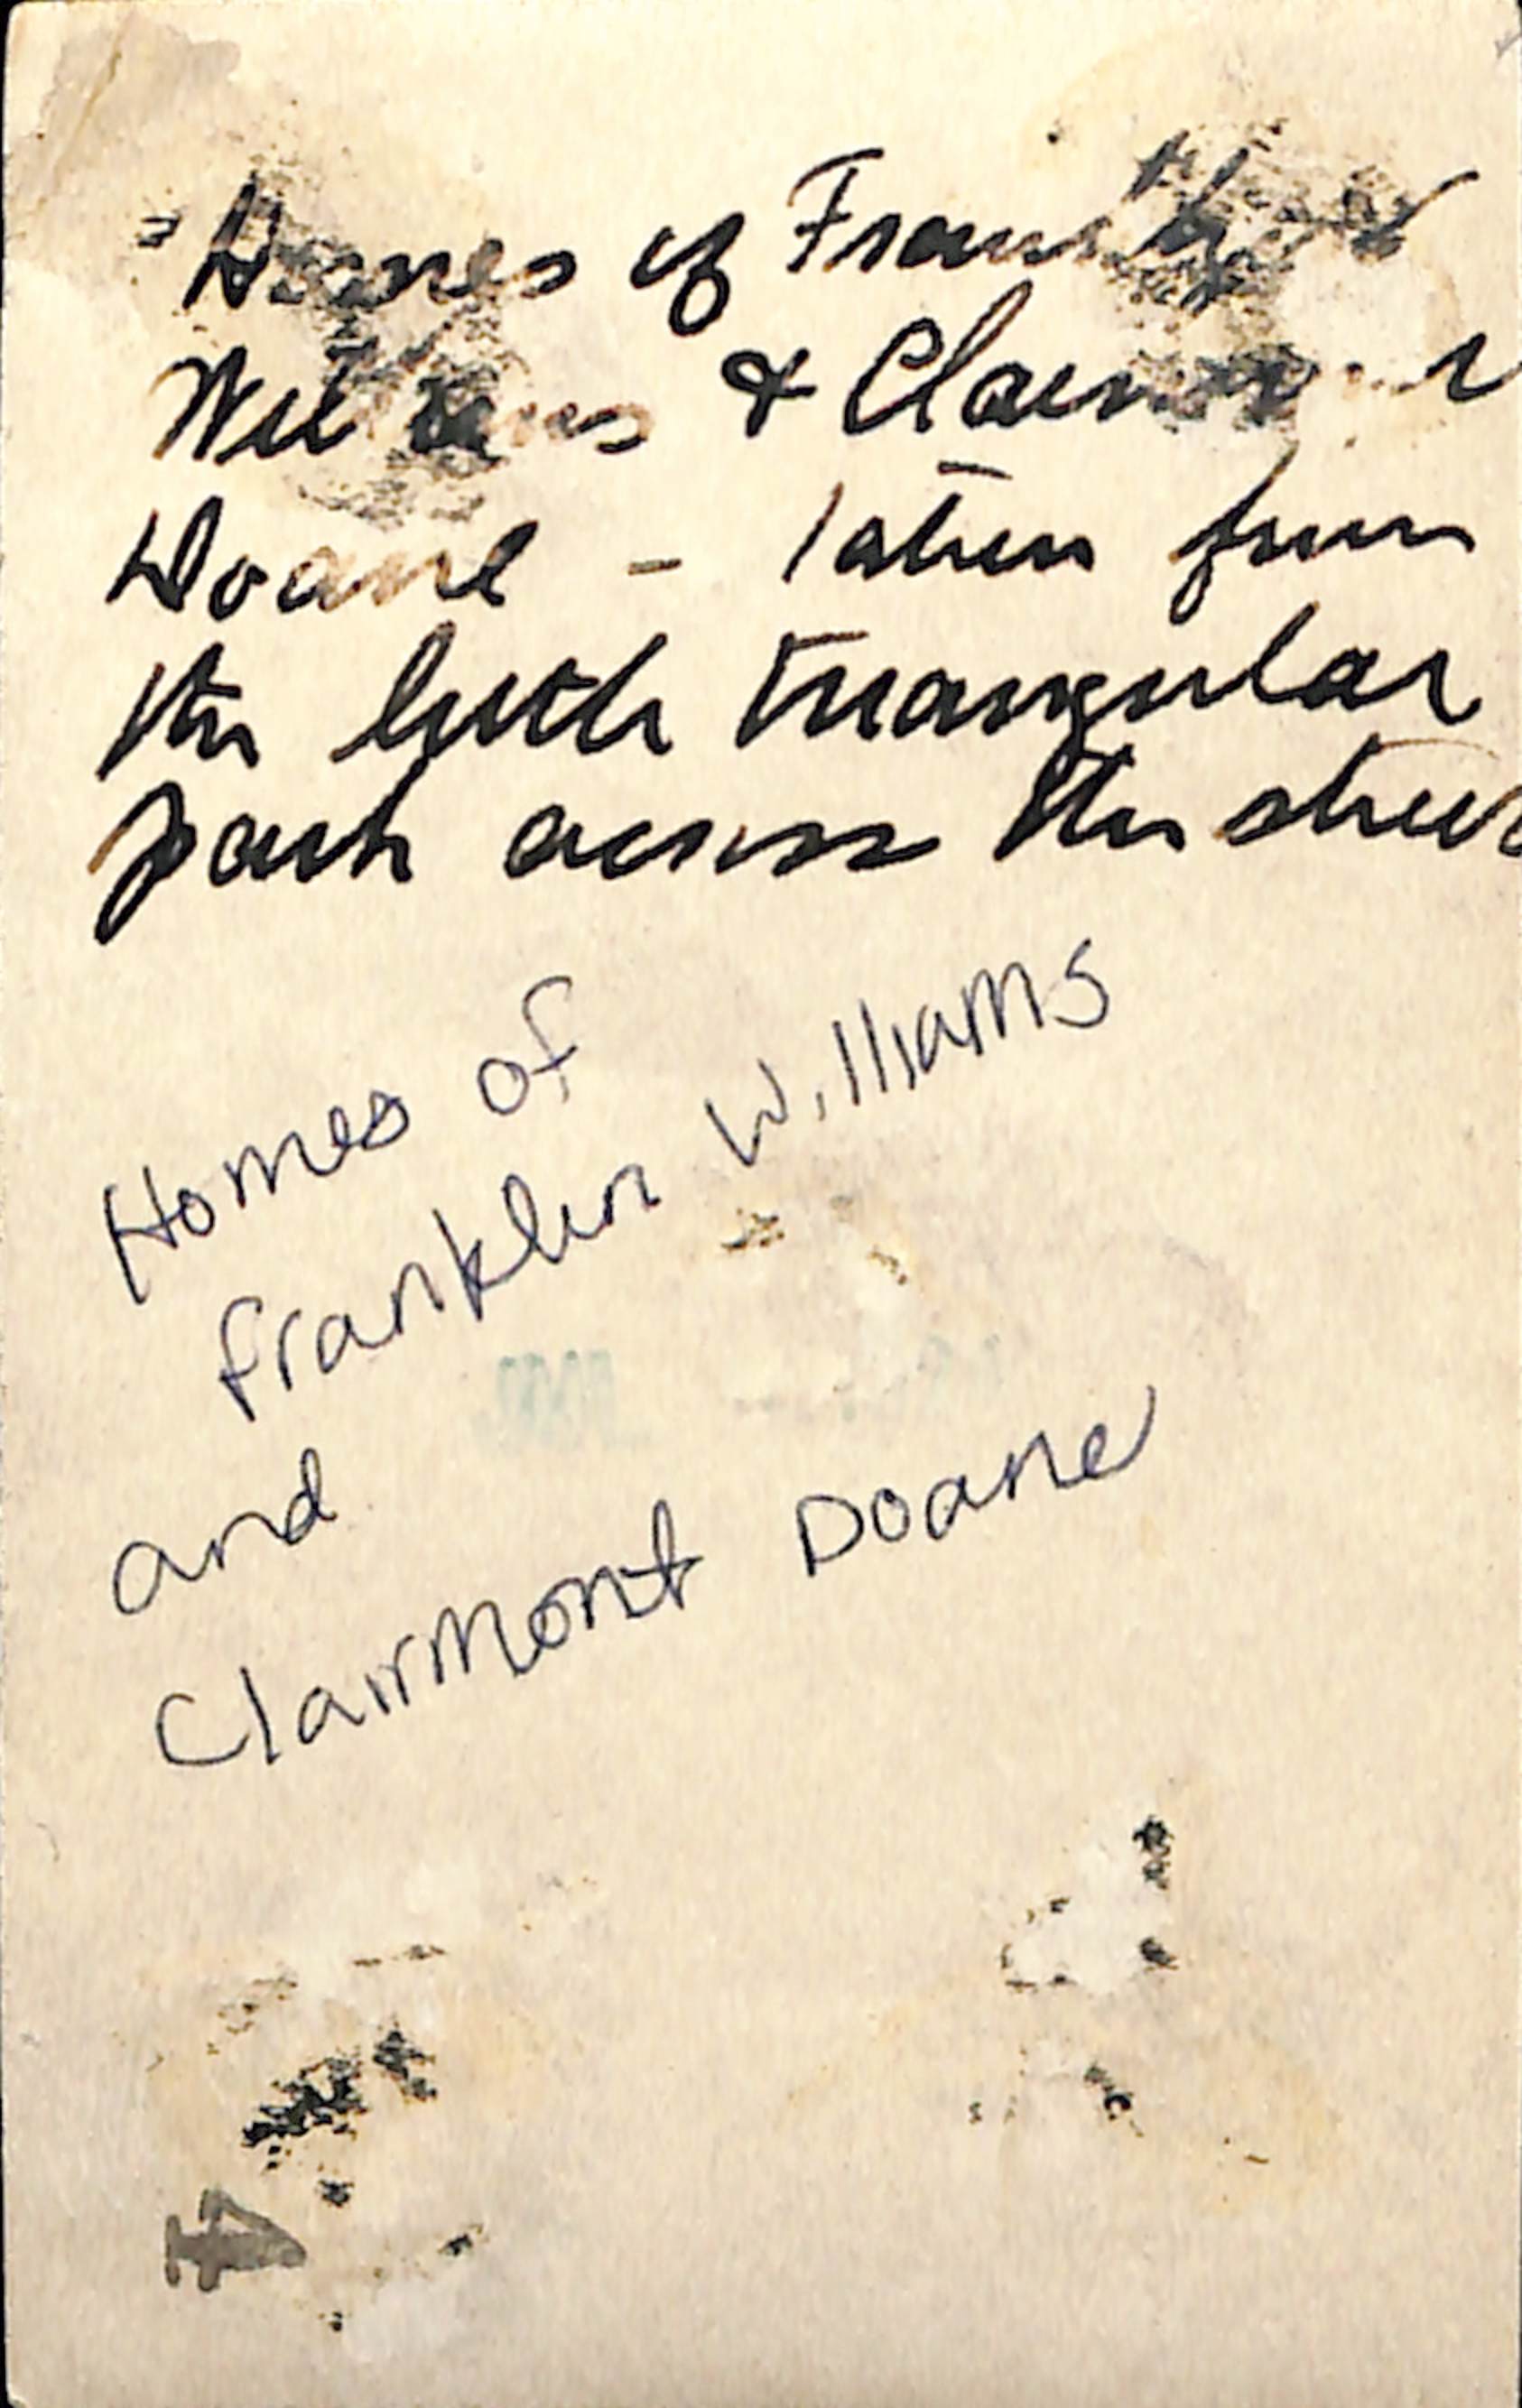 Homes of Franklin
Williams & Clairmont
Doane - Taken from
the little triangular
park across the street
Homes of
Franklin Williams
and
Clairmont Doane